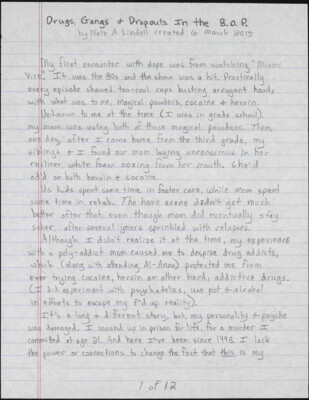 Drugs, Gangs & Dropouts In the B.O.P.
by Nate A. Lindell created 6 March 2015
My first encounter with dope was from watching "Miami
Vice." It was the 80s and the show was a hit. Practically
every episode showed too-cool cops busting arrogant hoods
with what was, to me, magical powders, cocaine & heroin.
Unknown to me at the time (I was in grade school)
my mom was using both of those magical powders. Then,
one day after I came home from the third grade, my
siblings & I found our mom laying unconscious in her
recliner, white foam oozing from her mouth. She'd
od'd on both heroin & cocaine.
Us kids spent some time in foster care, while mom spent
some time in rehab. The home scene didn't get much
better after that, even though mom did eventually stay
sober, after several years sprinkled with relapses.
Although I didn't realize it at the time, my experience
with a poly-addict mom caused me to despise drug addicts,
which (along with attending Al-Anon) protected me from
ever trying cocaine, heroin or other hard, addictive drugs.
(I did experiment with psychedelics, use pot & alcohol
in efforts to escape my f'd up reality).
It's a long & different story, but, my personality & psyche
was damaged. I wound up in prison for life, for a murder I
committed at age 21. And here I've been since 1998. I lack
the power or connections to change the fact that this is my
1 of 12